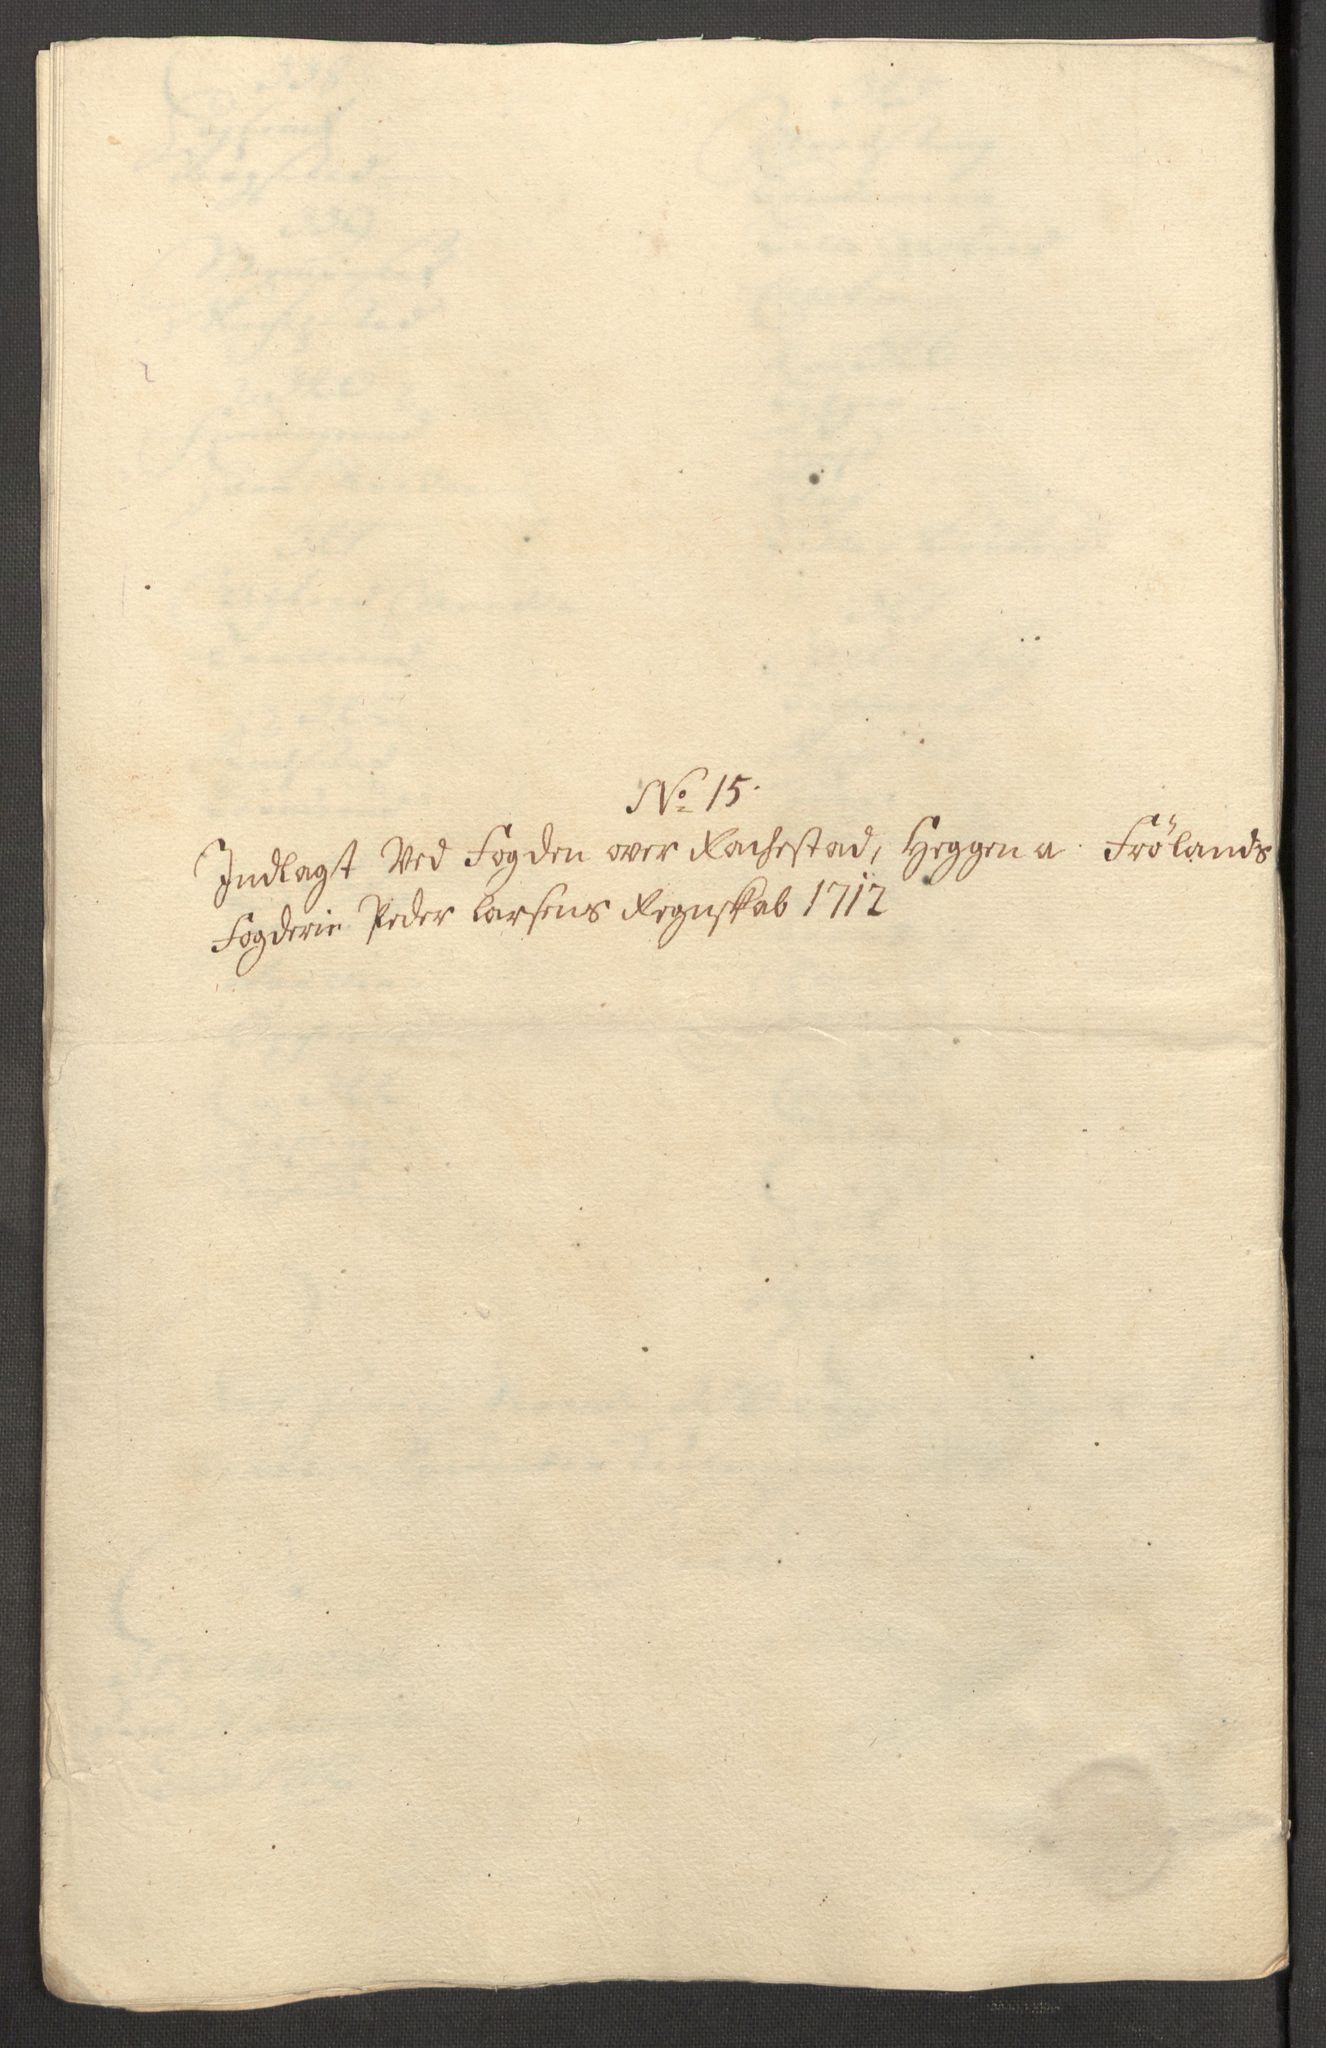 No 15.
Indlagt Ved Fogden over Rachestad, Heggen a Frølands
Fogderie Peder Larsens Regnskab 1712